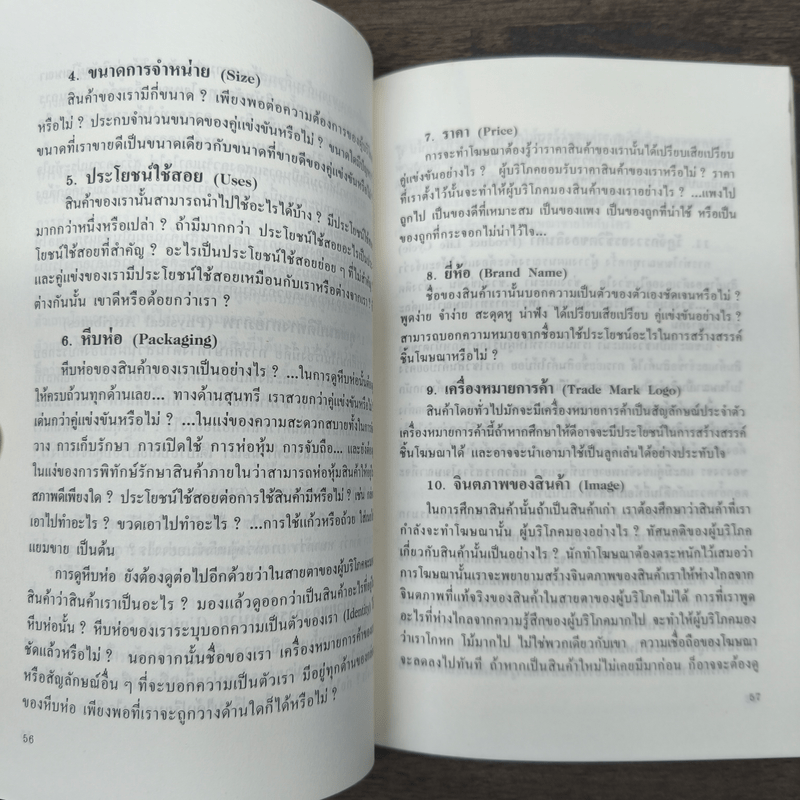 4. ขนาดการจำหน่าย (Size)
สินค้าของเรามีกี่ขนาด ? เพียงพอต่อความต้องการของ
หรือไม่ ? ประกบจำนวนขนาดของคู่แข่งขันหรือไม่ ? ขนาดใด
ขนาดที่เราขายดีเป็นขนาดเดียวกับขนาดที่ขายดีของคู่แข่งขัน
5. ประโยชน์ใช้สอย (Uses)
สินค้าของเรานั้นสามารถนำไปใช้อะไรได้บ้าง ? มีประโยชน์ใช้
มากกว่าหนึ่งหรือเปล่า ? ถ้ามีมากกว่า ประโยชน์ใช้สอยอะไรเป็น
โยชน์ใช้สอยที่สำคัญ ? อะไรเป็นประโยชน์ใช้สอยย่อย ๆ ที่ไม่
และคู่แข่งของเรามีประโยชน์ใช้สอยเหมือนกับเราหรือต่างจากเรา ?
ต่างกันนั้น เขาดีหรือด้อยกว่าเรา ?
6. หีบห่อ (Packaging)
หีบห่อของสินค้าของเราเป็นอย่างไร ? ...ในการดูหีบห่อนั้น
ให้ครบถ้วนทุกด้านเลย... ทางด้านสุนทรี เราสวยกว่าคู่แข่งขัน
เด่นกว่าคู่แข่งขันหรือไม่ ? ...ในแง่ของความสะดวกสบายทั้งใน
วาง การเก็บรักษา การเปิดใช้ การห่อหุ้ม การจับถือ...
ในแง่ของการพิทักษ์รักษาสินค้าภายในว่าสามารถห่อหุ้มสินค้าให้
สภาพดีเพียงใด ? ประโยชน์ใช้สอยต่อการใช้สินค้ามีหรือไม่ ? เช่น
เอาไปทำอะไร ? ขวดเอาไปทำอะไร ? ...การใช้แก้วหรือถ้วย
แยมขาย เป็นต้น
การดูหีบห่อ ยังต้องดูต่อไปอีกด้วยว่าในสายตาของผู้บริโภค
สินค้าว่าสินค้าเราเป็นอะไร ? มองแล้วดูออกว่าเป็นสินค้าอะไร
หีบห่อนั้น ? หีบห่อของเราระบุบอกความเป็นตัวของเรา (Identity)
ชัดแล้วหรือไม่ ? นอกจากนั้นชื่อของเรา เครื่องหมายการค้า
หรือสัญลักษณ์อื่น ๆ ที่จะบอกความเป็นตัวเรา มีอยู่ทุกด้านของ
ของหีบห่อ เพียงพอที่เราจะถูกวางด้านใดก็ได้หรือไม่ ?
56
7. ราคา (Price)
การจะทำโฆษณาต้องรู้ว่าราคาสินค้าของเรานั้นได้เปรียบเสียเปรียบ
คู่แข่งขันอย่างไร ? ผู้บริโภคยอมรับราคาสินค้าของเราหรือไม่ ? ราคา
ที่เราตั้งไว้นั้นจะทำให้ผู้บริโภคมองสินค้าของเราอย่างไร ? ...แพงไป
ถูกไป เป็นของดีที่เหมาะสม เป็นของแพง เป็นของถูกที่น่าใช้ หรือเป็น
ของถูกที่กระจอกไม่น่าไว้ใจ...
8. ยี่ห้อ (Brand Name)
ชื่อของสินค้าเรานั้นบอกความเป็นตัวของตัวเองชัดเจนหรือไม่ ?
พูดง่าย จำง่าย สะดุดหู น่าฟัง ได้เปรียบเสียเปรียบ คู่แข่งขันอย่างไร ?
สามารถบอกความหมายจากชื่อมาใช้ประโยชน์อะไรในการสร้างสรรค์
ชิ้นโฆษณาหรือไม่ ?
9. เครื่องหมายการค้า (Trade Mark Logo)
สินค้าโดยทั่วไปมักจะมีเครื่องหมายการค้าเป็นสัญลักษณ์ประจำตัว
เครื่องหมายการค้านี้ถ้าหากศึกษาให้ดีอาจจะมีประโยชน์ในการสร้างสรรค์
ชิ้นโฆษณาได้ และอาจจะนำเอามาใช้เป็นลูกเล่นได้อย่างประทับใจ
10. จินตภาพของสินค้า (Image)
ในการศึกษาสินค้านั้นถ้าเป็นสินค้าเก่า เราต้องศึกษาว่าสินค้าที่เรา
กำลังจะทำโฆษณานั้น ผู้บริโภคมองอย่างไร ? ทัศนคติของผู้บริโภค
เกี่ยวกับสินค้านั้นเป็นอย่างไร ? นักทำโฆษณาต้องตระหนักไว้เสมอว่า
การโฆษณานั้นเราจะพยายามสร้างจินตภาพของสินค้าเราให้ห่างไกลจาก
จินตภาพที่แท้จริงของสินค้าในสายตาของผู้บริโภคไม่ได้ การที่เราพูด
อะไรที่ห่างไกลจากความรู้สึกของผู้บริโภคมากไป จะทำให้ผู้บริโภคมอง
ว่าเราโกหก โม้มากไป ไม่ใช่พวกเดียวกับเขา ความเชื่อถือของโฆษณา
จะลดลงไปทันที ถ้าหากเป็นสินค้าใหม่ไม่เคยมีมาก่อน ก็อาจจะต้องดู
57